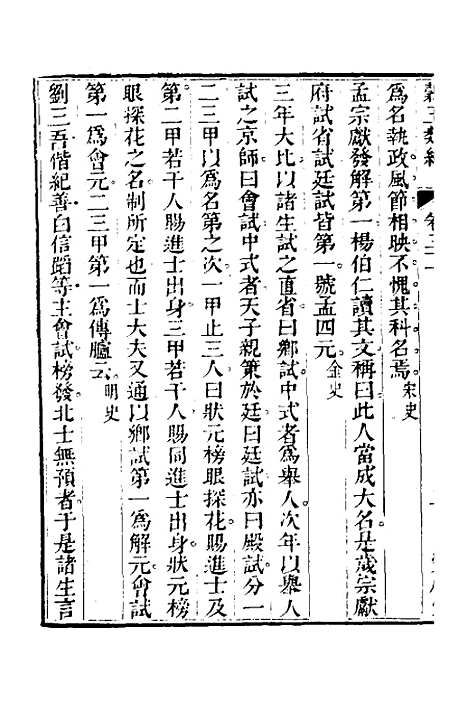 卷三十一
為名執政風節相映不愧其科名焉宋史
孟宗獻發解第一楊伯仁讀其文稱曰此人當成大名是歲宗獻
府試省試廷試皆第一號孟四元金史
三年大比以諸生試之直省曰鄉試中式者為舉人次年以舉人
試之京師曰會試中式者天子親策於廷曰廷試亦曰殿試分一
二三甲以為名第之次一甲止三人曰狀元榜眼探花賜進士及
第二甲若干人賜進士出身三甲若干人賜同進士出身狀元榜
眼探花之名制所定也而士大夫又通以鄉試第一為解元會試
第一為會元二三甲第一為傳臚云明史
劉三吾偕紀善白信蹈等主會試榜發北士無預者于是諸生言